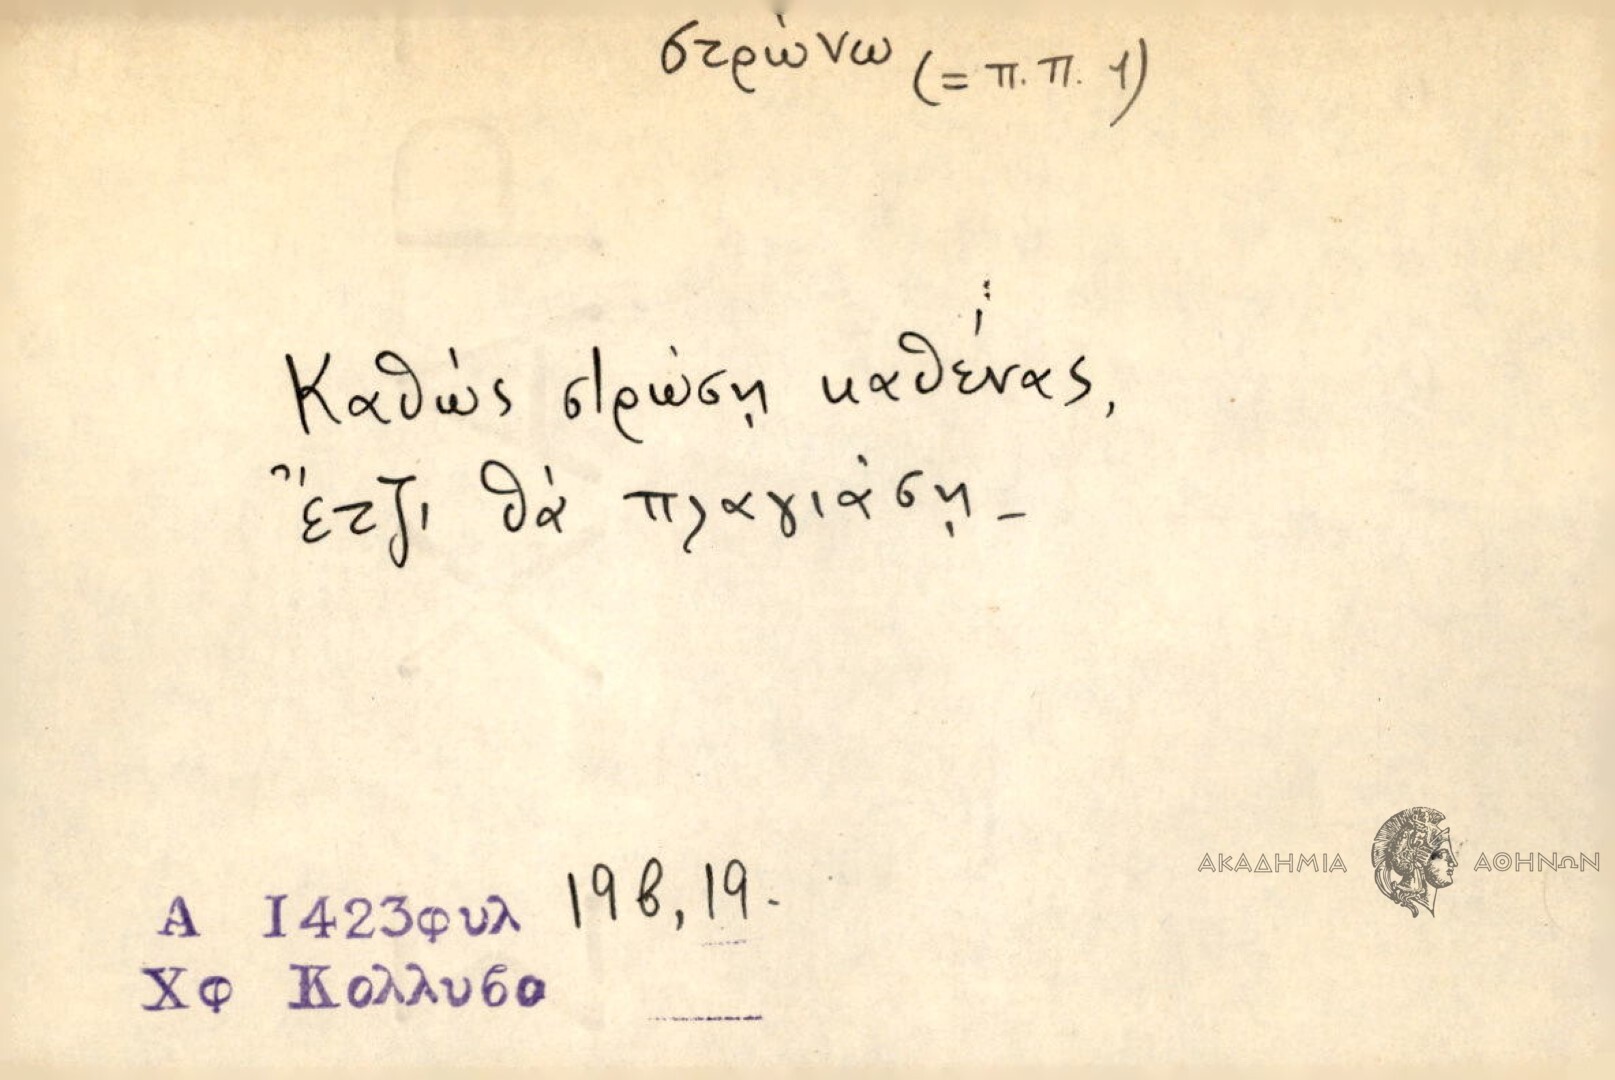 στρώνω (= π.π. 1)
Καθώς στρώση καθένας,
Ἔτζι θά πλαγιάση _
Α 1423φυλ 19β, 19.
Χφ Κολλυβα
ΑΚΑΔΗΜΙΑ ΑΘΗΝΩΝ